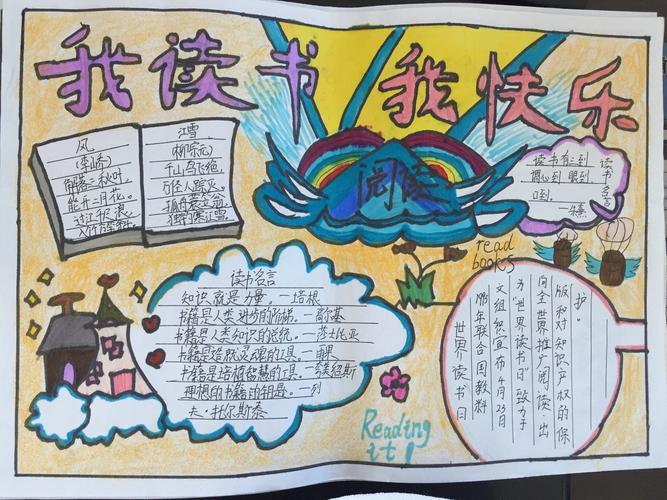 我读书 我快乐
风
(李峤)
解落三秋叶,
能开二月花。
过江千尺浪,
入竹万竿斜。
江雪
(柳宗元)
千山鸟飞绝,
万径人踪灭。
孤舟蓑笠翁,
独钓寒江雪
阅读
读书名言
读书有三到
谓心到 眼到
口到。
—朱熹
read
books
读书名言
知识就是力量。—培根
书籍是人类进步的阶梯。—高尔基
书籍是人类知识的总统。—莎士比亚
书籍是造就灵魂的工具。—雨果
书籍是培植智慧的工具。—夸美纽斯
理想的书籍的钥匙。—列
夫·托尔斯泰
世界读书日
1995年联合国教科
文组织宣布4月23日
为“世界读书日”致力于
向全世界推广阅读、出
版和对知识产权的保
护。
Reading
it!